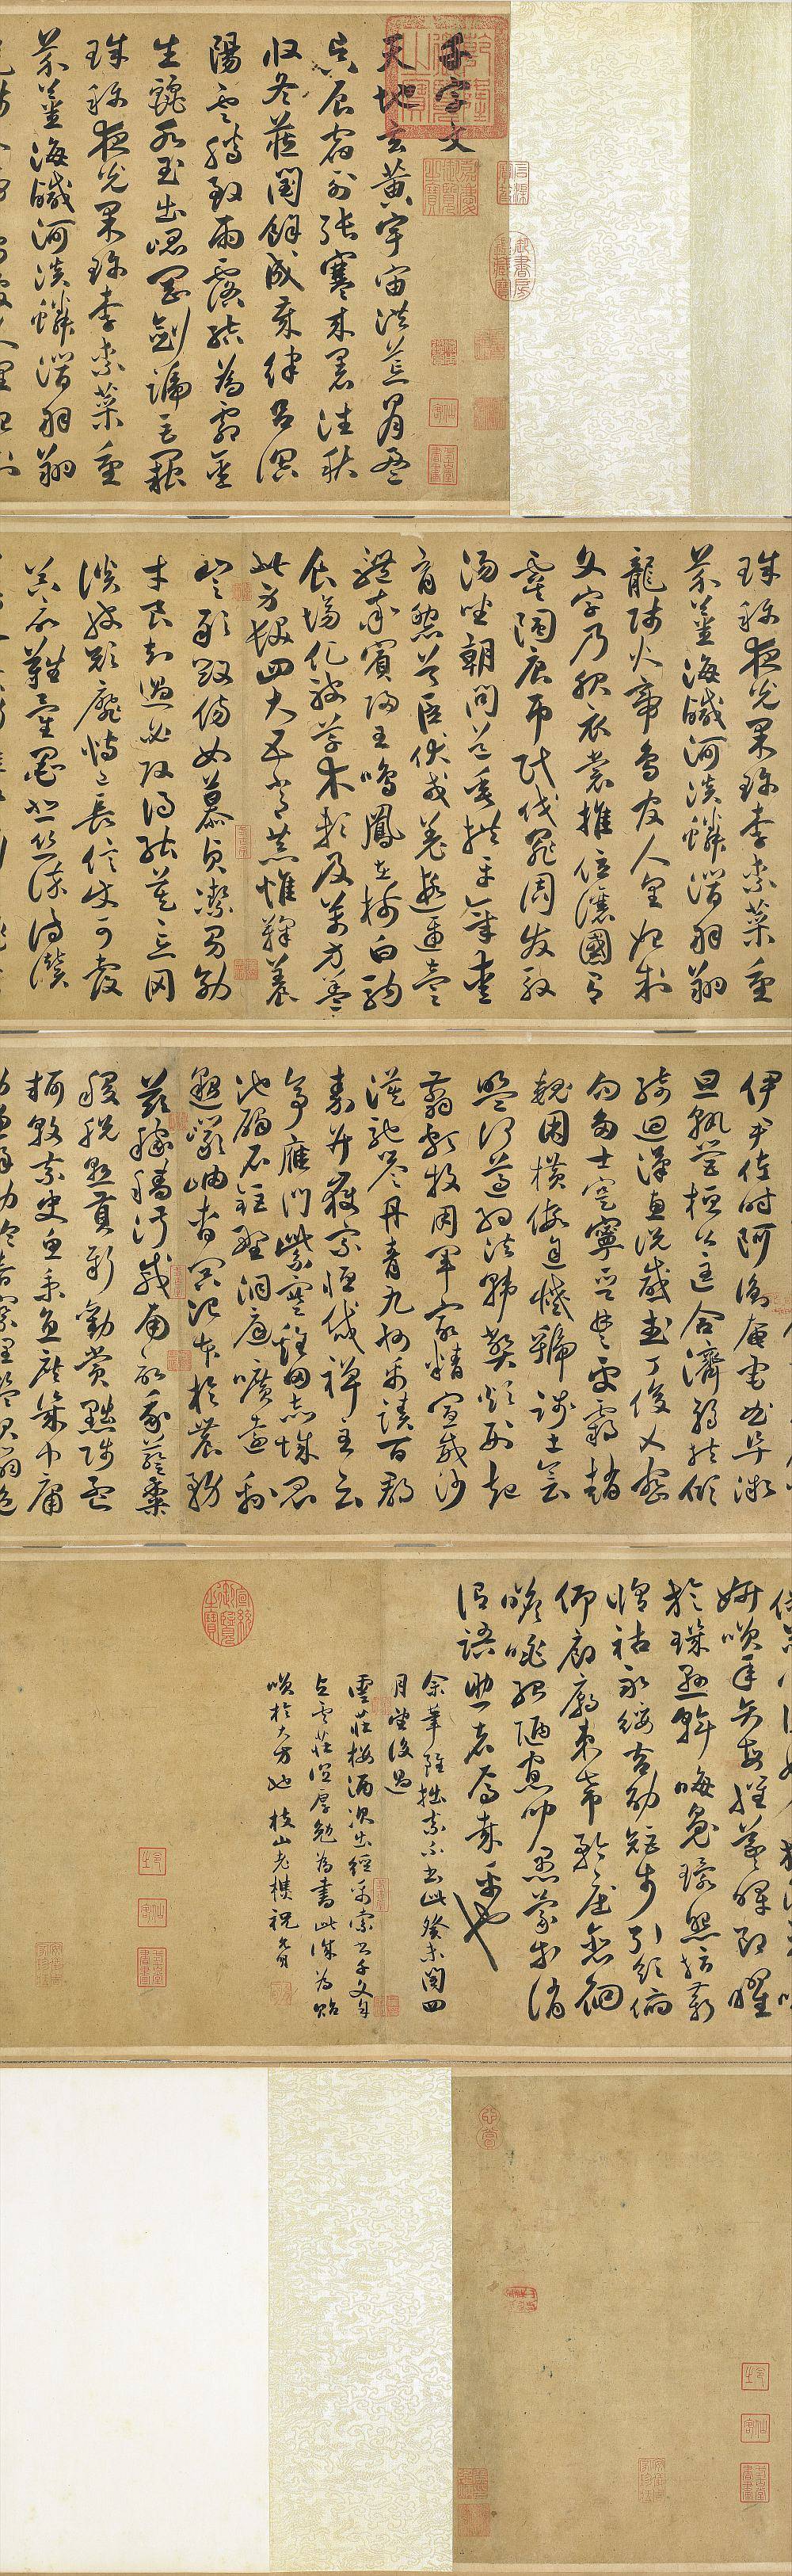 千字文
天地玄黃宇宙洪荒日月盈
昃辰宿列張寒來暑往秋
收冬藏閏餘成歲律呂調
陽雲騰致雨露結為霜金
生麗水玉出崑岡劍號巨闕
珠稱夜光果珍李柰菜重
芥薑海鹹河淡鱗潛羽翔
珠稱夜光果珍李柰菜重
芥薑海鹹河淡鱗潛羽翔
龍師火帝鳥官人皇始制
文字乃服衣裳推位讓國有
虞陶唐弔民伐罪周發殷
湯坐朝問道垂拱平章愛
育黎首臣伏戎羌遐邇壹
體率賓歸王鳴鳳在樹白駒
食場化被草木賴及萬方蓋
此身髮四大五常恭惟鞠養
豈敢毀傷女慕貞潔男效
才良知過必改得能莫忘罔
談彼短靡恃己長信使可覆
器欲難量墨悲絲染詩讚
伊尹佐時阿衡奄宅曲阜微
旦孰營桓公匡合濟弱扶傾
綺迴漢惠說感武丁俊乂密
勿多士寔寧晉楚更霸趙
魏困橫假途滅虢踐土會
盟何遵約法韓弊煩刑起
翦頗牧用軍最精宣威沙
漠馳譽丹青九州禹跡百郡
秦并嶽宗恆岱禪主云
亭雁門紫塞雞田赤城昆
池碣石鉅野洞庭曠遠綿
邈巖岫杳冥治本於農務
茲稼穡俶載南畝我藝黍
稷稅熟貢新勸賞黜陟孟
軻敦素史魚秉直庶幾中庸
妍笑年矢每催羲暉朗曜
旋璣懸斡晦魄環照指薪
脩祜永綏吉劭矩步引領俯
仰廊廟束帶矜莊徘徊
瞻眺孤陋寡聞愚蒙等誚
謂語助者焉哉乎也
余筆雖拙素不書此癸未閏四
月望後過
雲莊樓酒次出經帋索書千文
雲莊深厚勉為書此誠為貽
笑於大方也枝山老樵祝允明